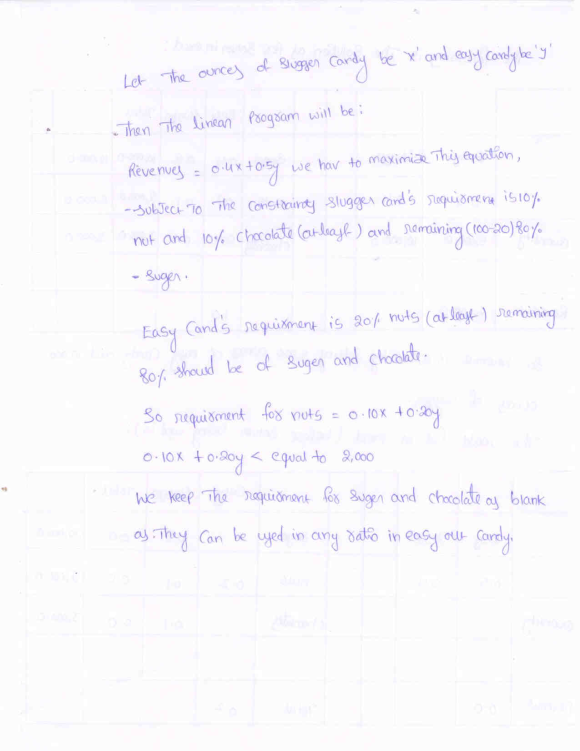 Let The ounces of Slugger Candy be 'x' and easy Candy be 'y'
Then The linear Program will be:
Revenues = 0.4x+0.5y we hav to maximize This equation,
- Subject To The Constrainty slugger cand's requirment is 10%
nut and 10% Chocolate (at least) and remaining (100-20) 80%
- Suger.
Easy Cand's requirment is 20% nuts (at least) remaining
80% should be of Suger and chocolate.
So requirment for nuts = 0.10x + 0.20y
0.10x + 0.20y < equal to 2,000
We keep The requirment for Suger and chocolate as blank
as. They Can be used in any ratio in easy out Candy.